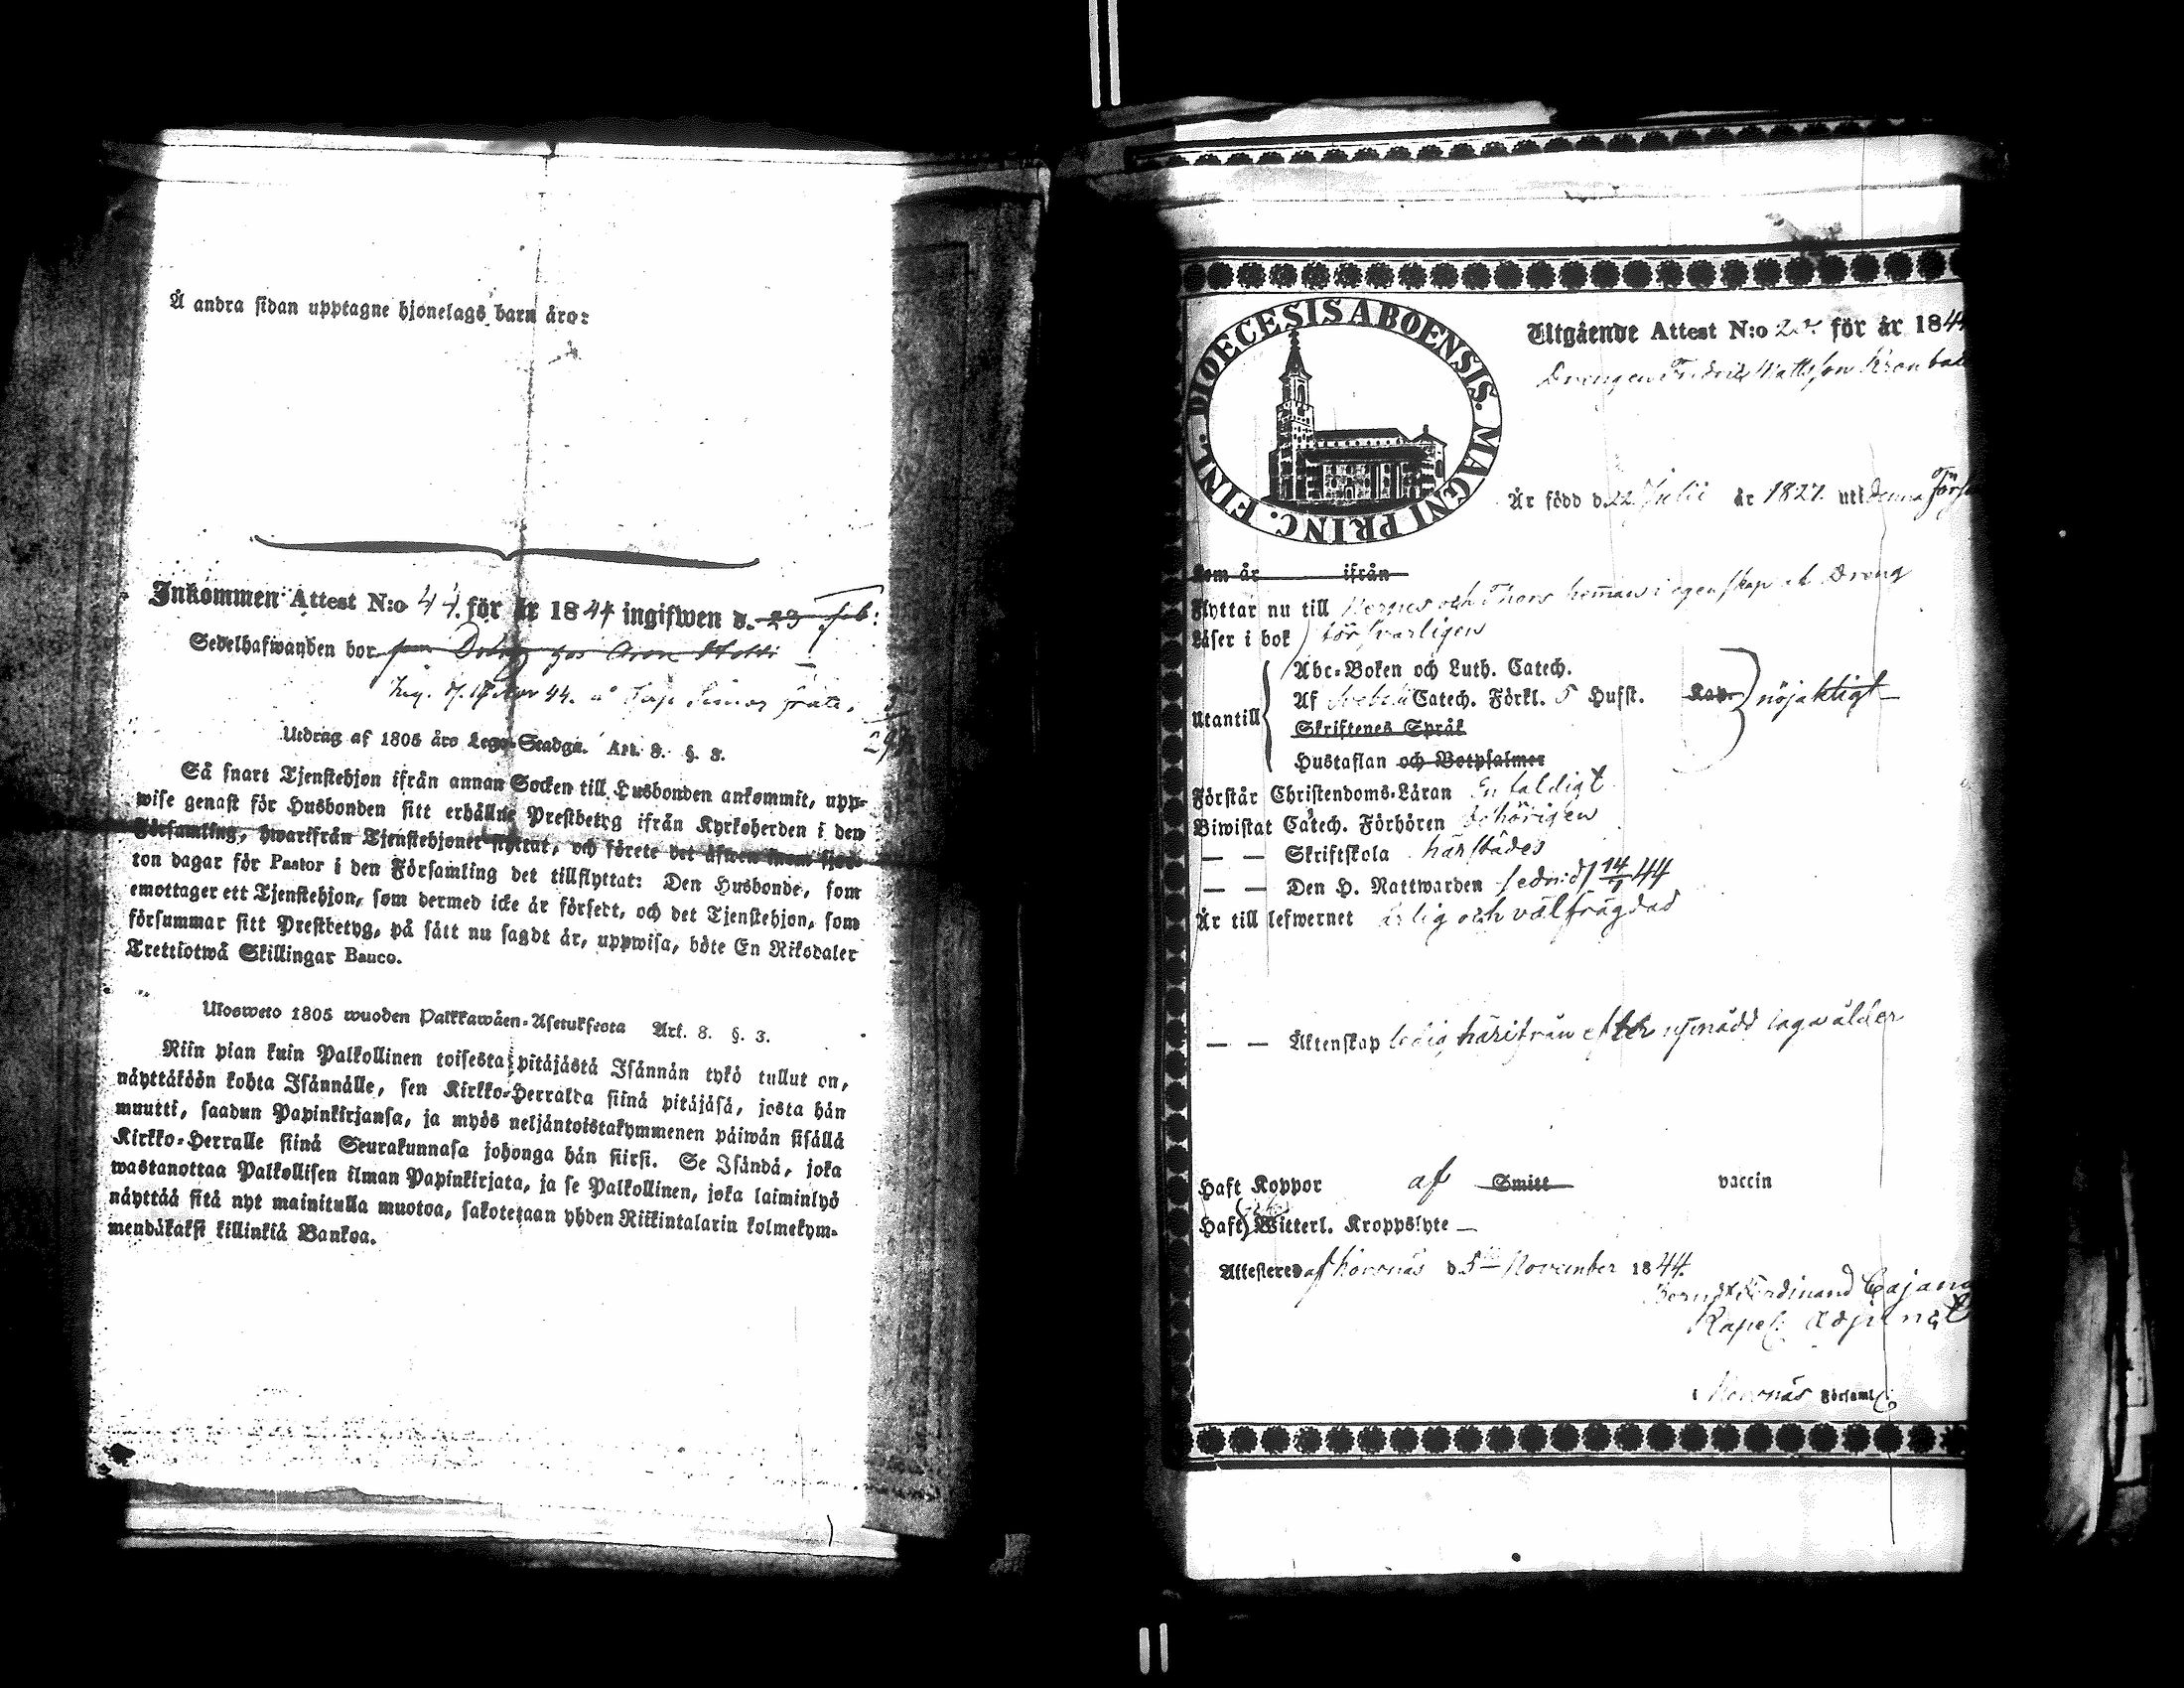 Å andra sidan upptagne hjonelags barn äro:
Inkommen Attest N:o 44. för år 1844 ingifwen d. 23 feb:
Sedelhafwanden bor
Utdrag af 1805 års Lego-Stadga. Art. 8. §. 3.
Så snart Tjenstehjon ifrån annan Socken till Husbonden ankommit, upp-
wise genast för Husbonden sitt erhållne Prestbetyg ifrån Kyrkoherden i den
Församling, hwarifrån Tjenstehjonet flyttat, och förete det äfwen inom fjor-
ton dagar för Pastor i den Församling det tillflyttat: Den Husbonde, som
emottager ett Tjenstehjon, som dermed icke är försedt, och det Tjenstehjon, som
försummar sitt Prestbetyg, på sätt nu sagdt är, uppwisa, böte En Riksdaler
Trettiotwå Skillingar Banco.
Ulosweto 1805 wuoden Palkkawäen-Asetuksesta Art. 8. §. 3.
Niin pian kuin Palkollinen toisesta pitäjästä Isännän tykö tullut on,
näyttäköön kohta Isännälle, sen Kirkko-Herralda siinä pitäjäsä, josta hän
muutti, saadun Papinkirjansa, ja myös neljäntoistakymmenen päiwän sisällä
Kirkko-Herralle siinä Seurakunnasa johonga hän siirsi. Se Isändä, joka
wastanottaa Palkollisen ilman Papinkirjata, ja se Palkollinen, joka laiminlyö
näyttää sitä nyt mainitulla muotoa, sakotetaan yhden Riikintalarin kolmekym-
mendäkaksi killinkiä Bankoa.
DIOECESIS ABOENSIS. MAGNI PRINC. FINL.
Utgående Attest N:o för år 1844
Drengen Fredrik Mattsson
Är född d. 22 Julii år 1827. uti denna
Som är ifrån
Flyttar nu till och Thors hemman i egenskap at Dreng
Läser i bok försvarligen
Utantill
Abc-Boken och Luth. Catech.
Af Svebelii Catech. Förkl. 5 Hufst. Kap. nöjaktigt
Skriftenes Språk
Hustaflan och Botpsalmer
Förstår Christendoms-Läran Enfaldigt
Biwistat Catech. Förhören behörigen
— — Skriftskola härstädes
— — Den H. Nattwarden sednid 14/7 44
Är till lefwernet ärlig och välfrägdad
— — Äktenskap ledig härifrån efter uppnådd laga ålder
Haft Koppor af Smitt vaccin
Haft Witterl. Kroppslyte —
Attesteredaf Hovnäs d 5 November 1844.
Ferdinand Cajanus
Kapel: Adjunct
i Församl: